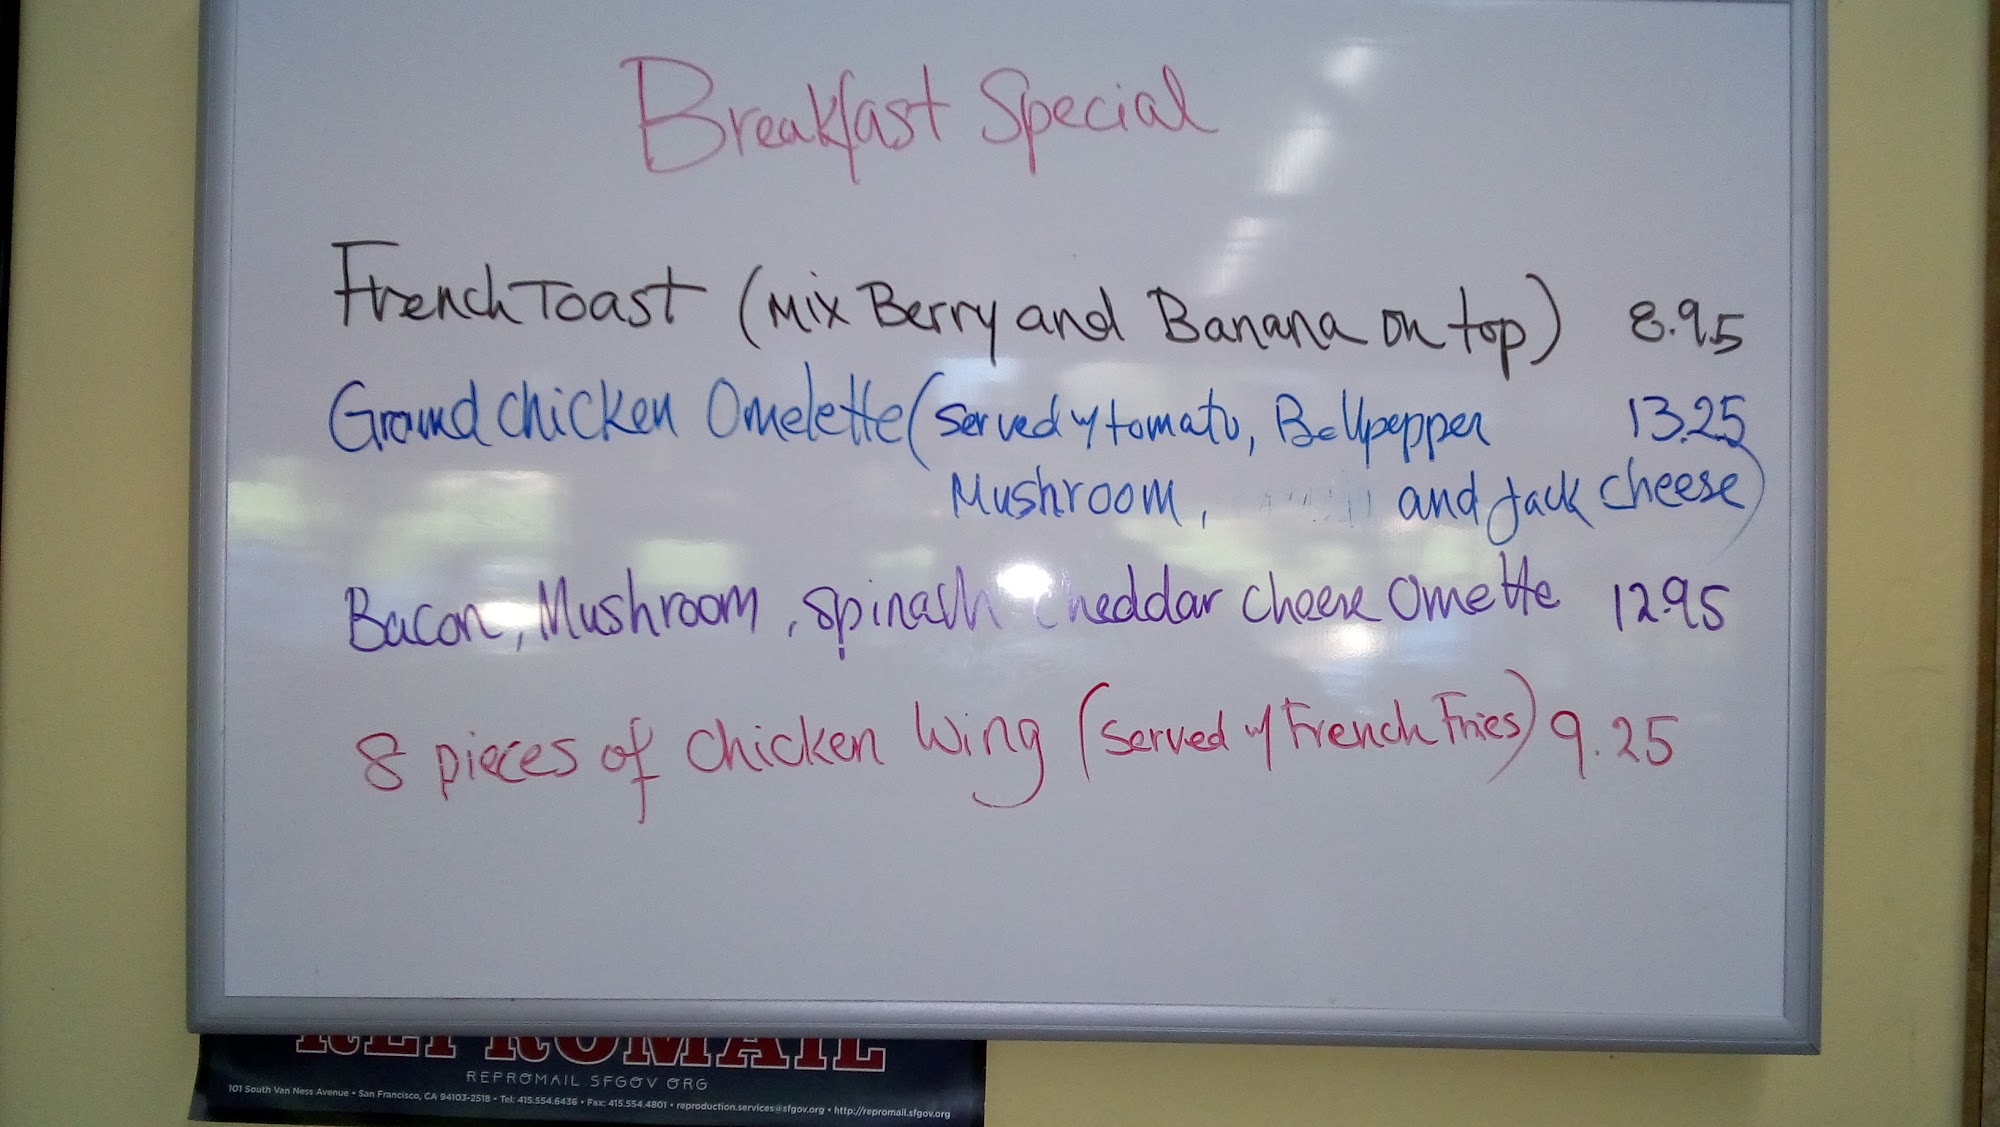 Breakfast Special
French Toast (Mix Berry and Banana on top) 8.95
Ground chicken Omelette (served w/ tomato, Bellpepper 13.25
Mushroom, and Jack cheese)
Bacon, Mushroom, spinach cheddar cheese Omette 12.95
8 pieces of chicken Wing (served w/ French Fries) 9.25
REPROMAIL
REPROMAIL.SFGOV.ORG
101 South Van Ness Avenue • San Francisco, CA 94103-2518 • Tel: 415.554.6436 • Fax: 415.554.4801 • reproduction.services@sfgov.org • http://repromail.sfgov.org